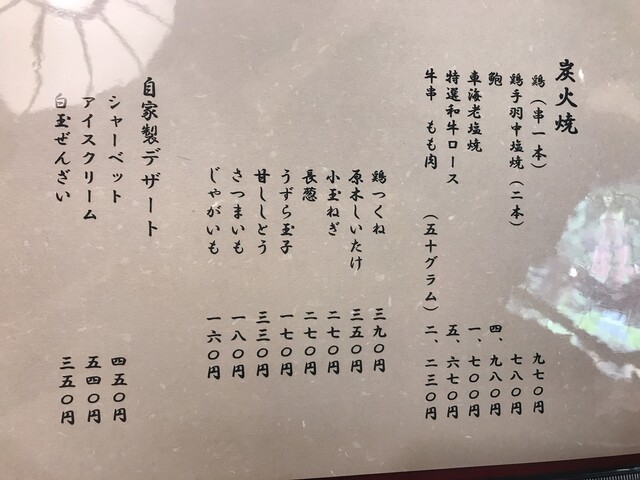 炭火焼
鶏（串一本） 九七〇円
鶏手羽中塩焼（二本） 七八〇円
鮑 四、九八〇円
車海老塩焼 一、七〇〇円
特選和牛ロース 五、六七〇円
牛串 もも肉（五十グラム） 二、二三〇円
鶏つくね 三九〇円
原木しいたけ 三五〇円
小玉ねぎ 二七〇円
長葱 二七〇円
うずら玉子 一七〇円
甘ししとう 三三〇円
さつまいも 一八〇円
じゃがいも 一六〇円
自家製デザート
シャーベット 四五〇円
アイスクリーム 五四〇円
白玉ぜんざい 三五〇円